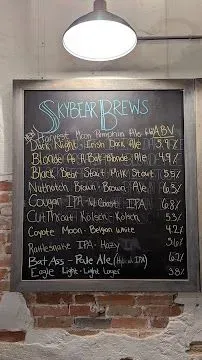 SKYBEAR BREWS
NEW Harvest Moon Pumpkin Ale ABV
Dark Night - Irish Dark Ale 3.9%
Blonde As A Bat - Blonde Ale 4.9%
Black Bear Stout Milk Stout 5.5%
Nuthatch Brown - Brown Ale 6.3%
Cougar IPA - W. Coast IPA 6.8%
CutThroat Kolsch - Kolsch 5.3%
Coyote Moon - Belgian White 4.2%
Rattlesnake IPA - Hazy 5.6%
Bat Ass - Pale Ale (IPA) 6.2%
Eagle Light - Light Lager 3.8%